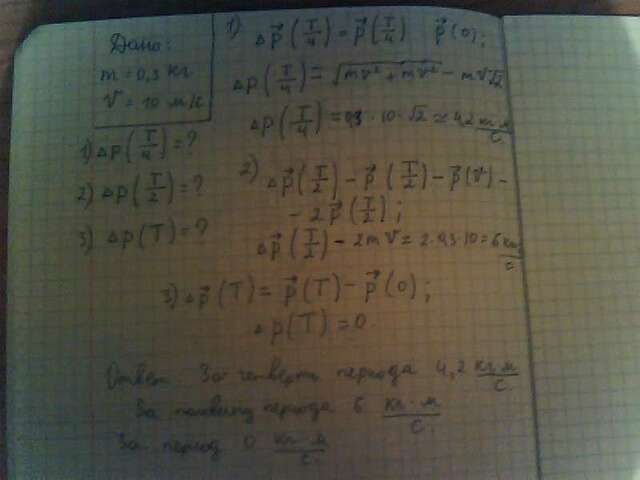 Дано:
m = 0,3 кг
V = 10 м/с
1) Δp(T/4) = ?
2) Δp(T/2) = ?
3) Δp(T) = ?
1) Δp⃗(T/4) = p⃗(T/4) p⃗(0);
Δp(T/4) = √(mv² + mv²) - mV√2
Δp(T/4) = 0,3 · 10 · √2 ≈ 4,2 кг·м/с
2) Δp⃗(T/2) - p⃗(T/2) - p⃗(0) -
- 2p⃗(T/2);
Δp⃗(T/2) - 2mV = 2·0,3·10 = 6 кг·м/с
3) Δp⃗(T) = p⃗(T) - p⃗(0);
Δp(T) = 0
Ответ За четверть периода 4,2 кг·м/с
За половину периода 6 кг·м/с
За период 0 кг·м/с